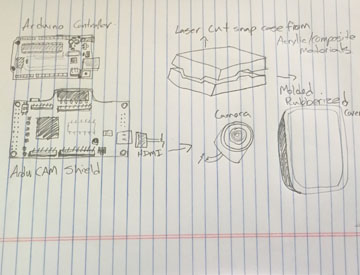 Arduino Controller.
Laser Cut snap case from
Acrylic/Composite
Materials
Molded
Rubberized
Cover
Camera
HDMI
ArduCAM Shield